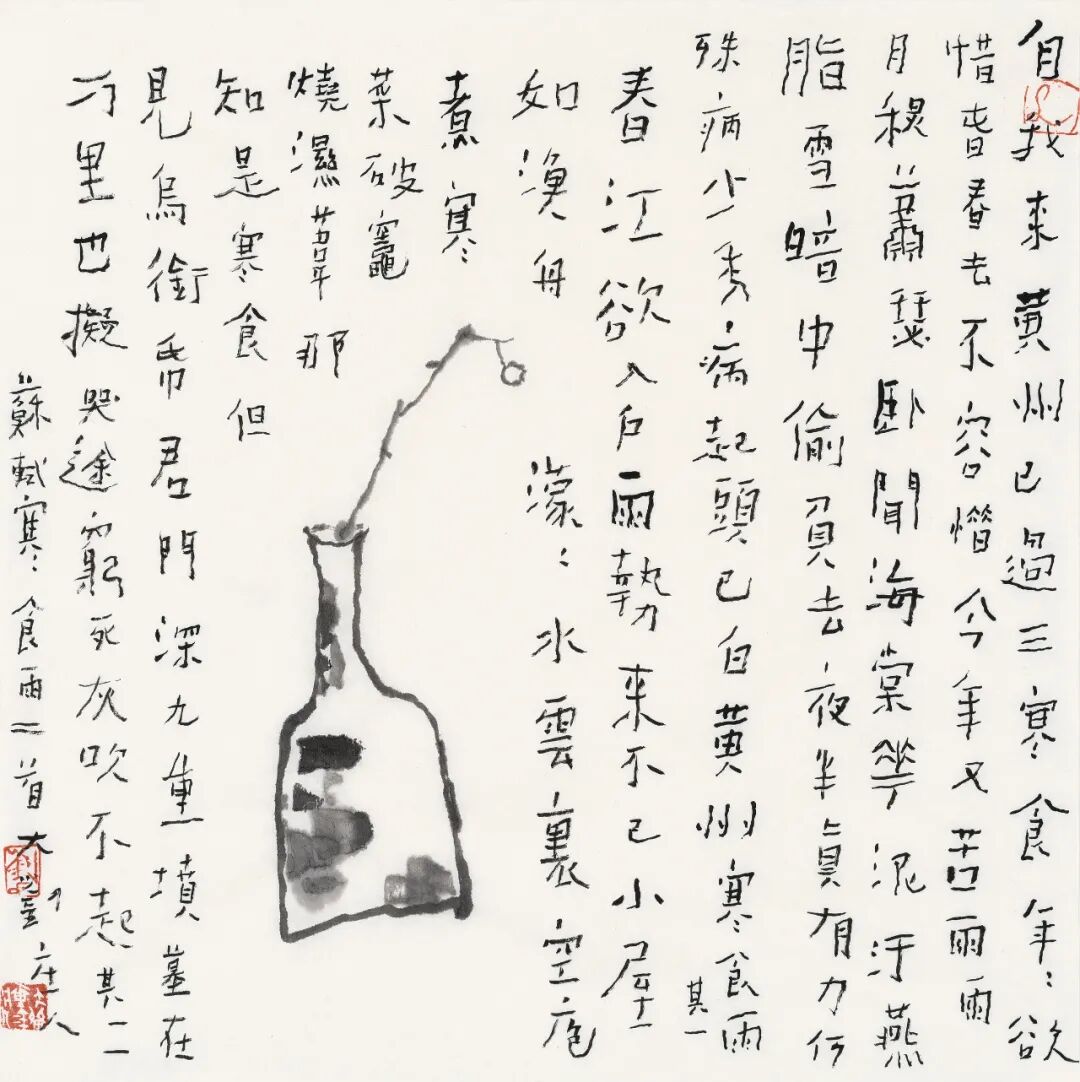 自我來黄州已過三寒食年々欲
惜春春去不容惜今年又苦雨雨
月秋蕭瑟卧聞海棠華泥汙燕
脂雪暗中偷負去夜半真有力何
殊病少年病起頭已白黄州寒食雨
其一
春江欲入户雨勢來不已小屋
如漁舟濛々水雲裏空庖
煮寒
菜破竈
燒濕葦那
知是寒食但
見烏銜帋君門深九重墳墓在
万里也擬哭途窮死灰吹不起其二
蘇軾寒食雨二首